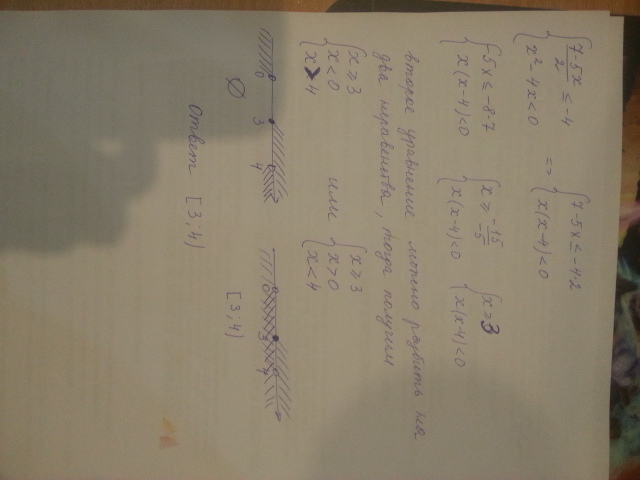 { (7-5x)/2 ≤ -4 => { 7-5x ≤ -4·2
{ x²-4x<0 { x(x-4)<0
{ -5x ≤ -8-7 { x ≥ -15/-5 { x ≥ 3
{ x(x-4)<0 { x(x-4)<0 { x(x-4)<0
второе уравнение можно разбить на
два неравенства, тогда получим
{ x ≥ 3 { x ≥ 3
{ x < 0 или { x > 0
{ x > 4 { x < 4
0 3 4 0 3 4
∅ [3;4)
Ответ [3,4)